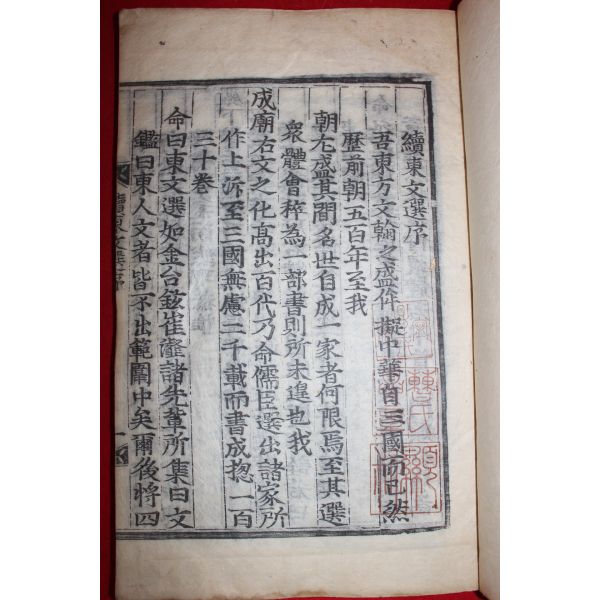 續東文選序
吾東方文翰之盛侔擬中華自三國而已然
歷前朝五百年至我
朝尤盛其間名世自成一家者何限焉至其選
衆體會稡為一部書則所未遑也我
成廟右文之化高出百代乃命儒臣選出諸家所
作上泝至三國無慮二千載而書成摠一百
三十卷
命曰東文選如金台鉉崔瀣諸先輩所集曰文
鑑曰東人文者皆不出範圍中矣爾後將四
續東文選序
一